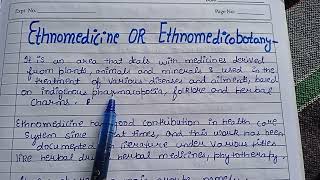 Expt. No.
Page No.
Ethnomedicine OR Ethnomedicobotany-
It is an area that deals with medicines derived
from plants, animals and minerals & used in the
treatment of various diseases and ailments, based
on indigenous pharmacopoeia, folklore and herbal
charms.
Ethnomedicine good contribution in health care
System since times, and this work has been
documented literature under various titles
like herbal drugs, herbal medicines, phytotherapy.